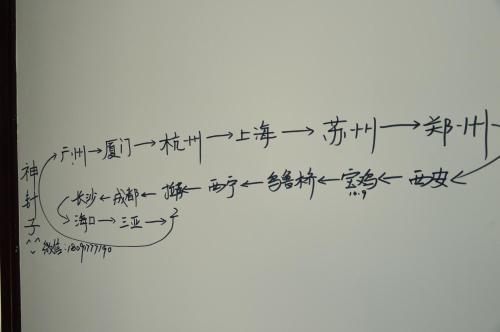 广州→厦门→杭州→上海→苏州→郑州→
长沙←成都← ←西宁←乌鲁桥←宝鸡←西安←
10.9
海口→三亚→?
神针子
微信: